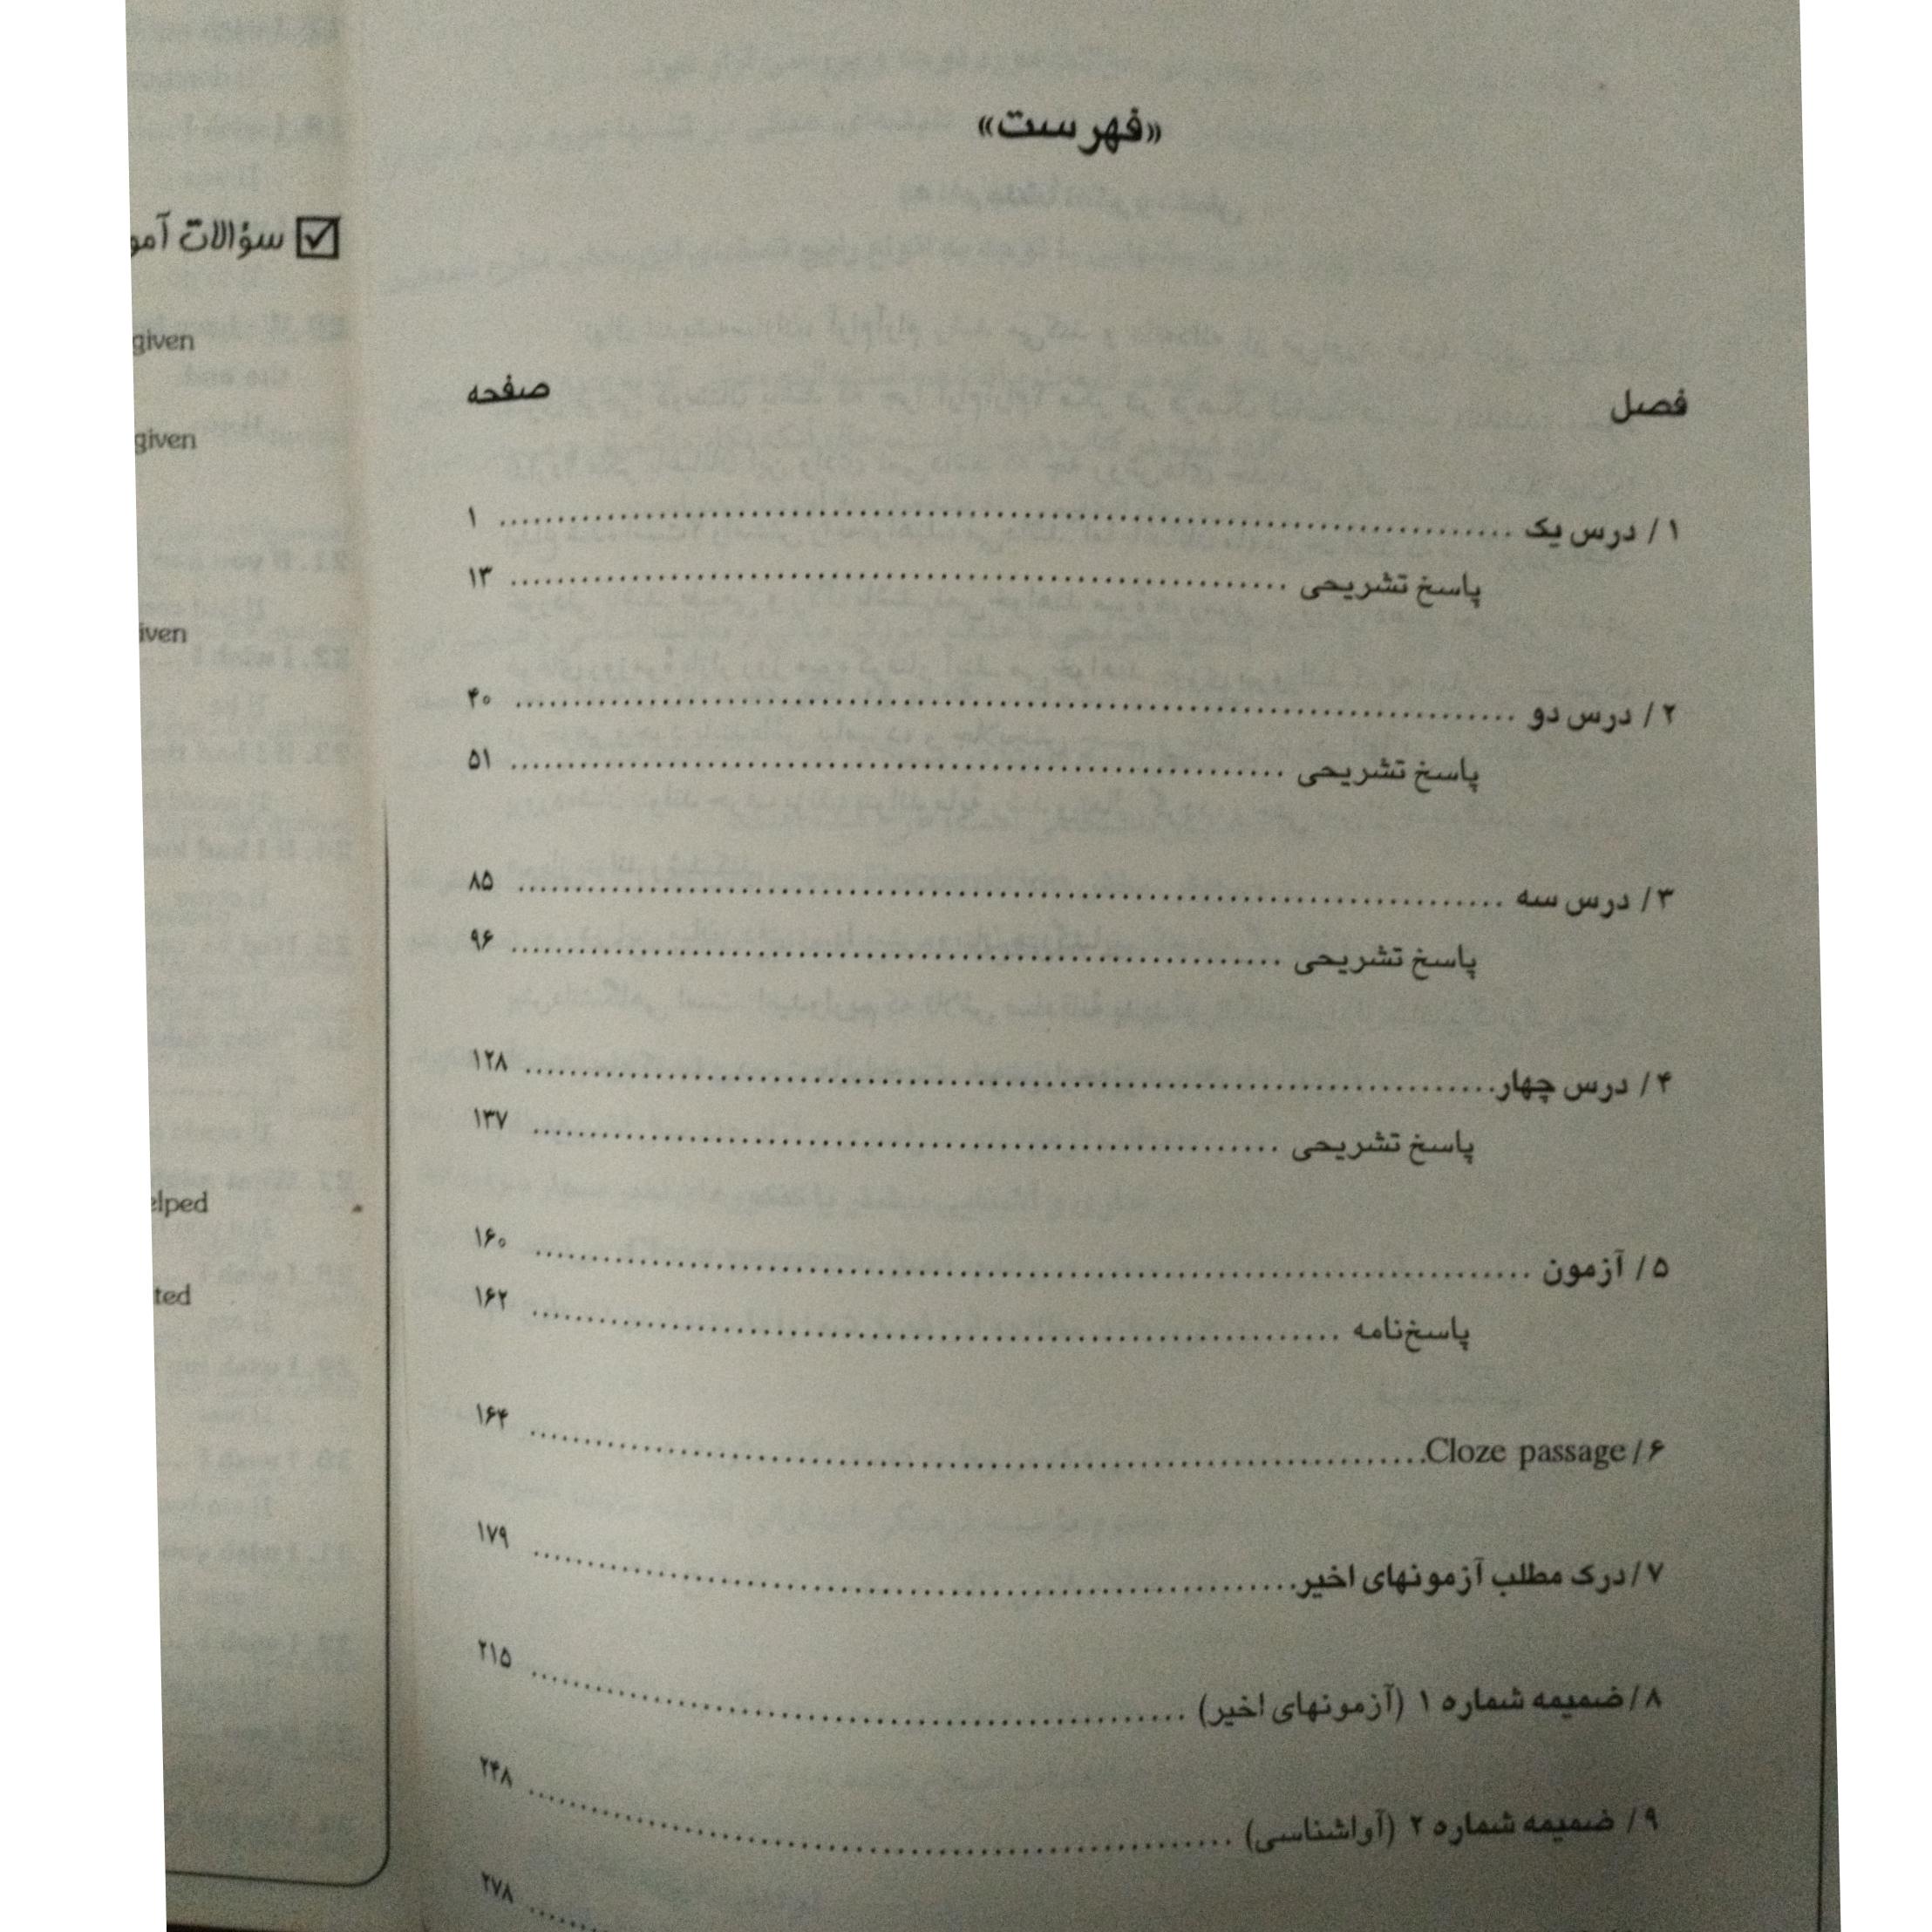 «فهرست»
فصل صفحه
۱/ درس یک ........ ۱
پاسخ تشریحی ........ ۱۳
۲/ درس دو ........ ۴۰
پاسخ تشریحی ........ ۵۱
۳/ درس سه ........ ۸۵
پاسخ تشریحی ........ ۹۶
۴/ درس چهار ........ ۱۲۸
پاسخ تشریحی ........ ۱۳۷
۵/ آزمون ........ ۱۶۰
پاسخ‌نامه ........ ۱۶۲
۶/ Cloze passage ........ ۱۶۴
۷/ درک مطلب آزمونهای اخیر ........ ۱۷۹
۸/ ضمیمه شماره ۱ (آزمونهای اخیر) ........ ۲۱۵
۹/ ضمیمه شماره ۲ (آواشناسی) ........ ۲۴۸
........ ۲۷۸
سؤالات آمو
given
given
iven
elped
ted